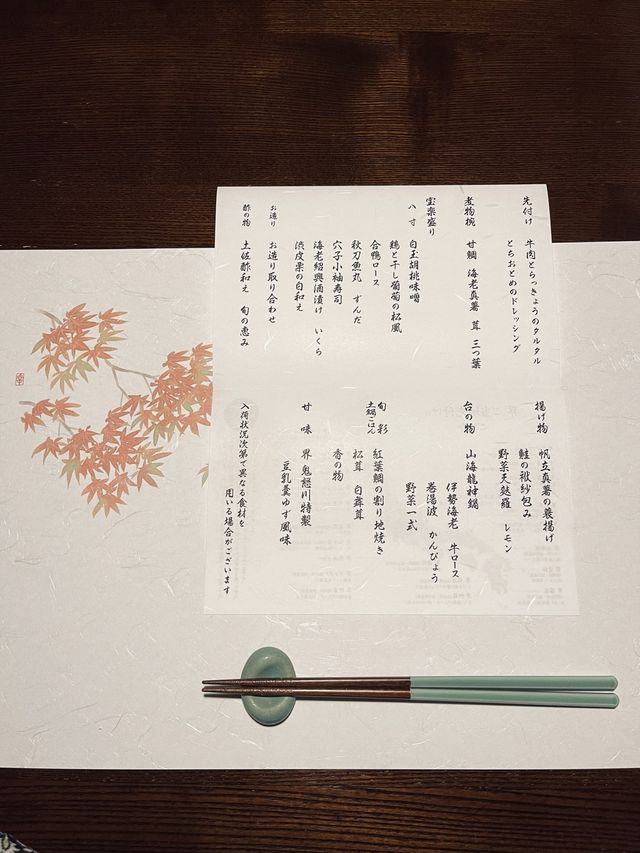 先付け 牛肉とらっきょうのタルタル
とちおとめのドレッシング
煮物椀 甘鯛 海老真薯 茸 三つ葉
宝楽盛り
八寸 白玉胡桃味噌
鶏と干し葡萄の松風
合鴨ロース
秋刀魚丸 ずんだ
穴子小袖寿司
海老紹興酒漬け いくら
渋皮栗の白和え
お造り お造り取り合わせ
酢の物 土佐酢和え 旬の恵み
揚げ物 帆立真薯の蓑揚げ
鮭の袱紗包み
野菜天麩羅 レモン
台の物 山海龍神鍋
伊勢海老 牛ロース
巻湯波 かんぴょう
野菜一式
旬彩 紅葉鯛の割り地焼き
土鍋ごはん 松茸 白舞茸
香の物
甘味 界 鬼怒川特製
豆乳羹ゆず風味
入荷状況次第で異なる食材を
用いる場合がございます